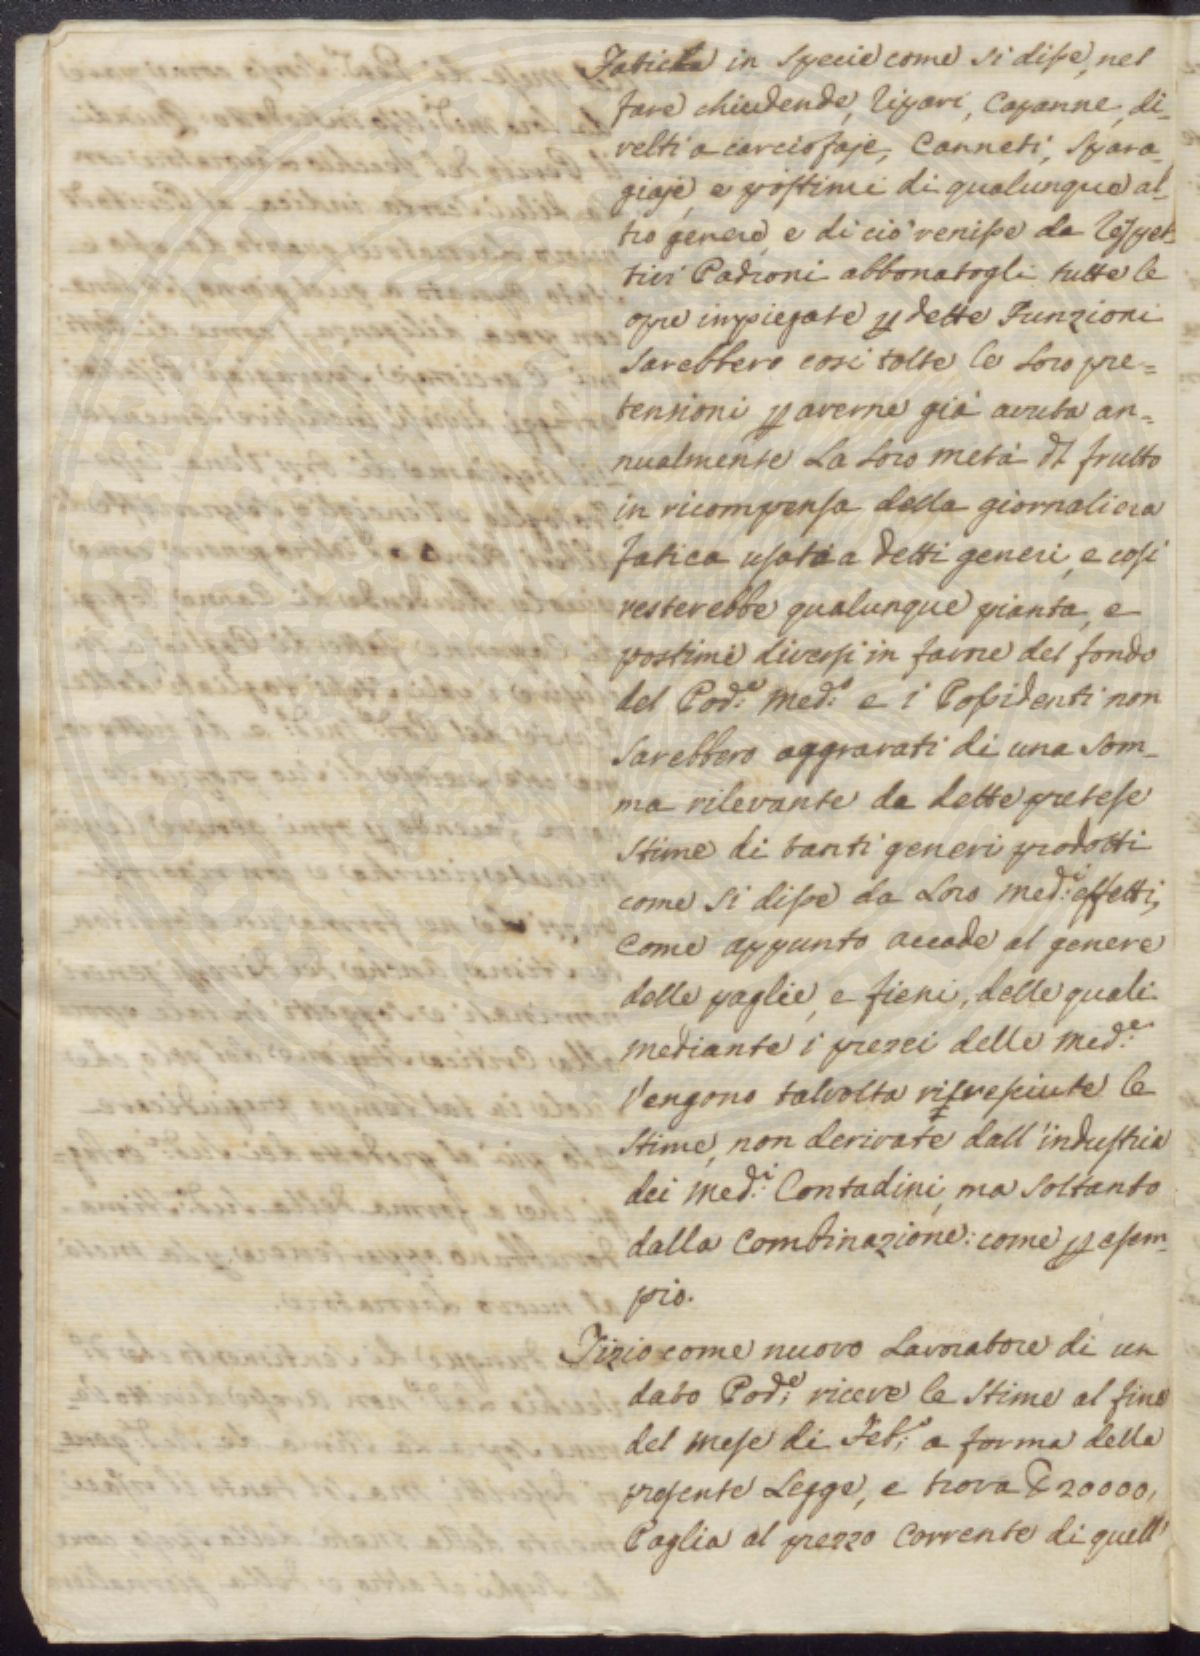 Faticha in specie come si disse, nel
fare chiudende, ripari, Capanne, di-
velti a carciofaje, Canneti, spara-
giaje, e postimi di qualunque al-
tro genere, e di ciò venisse da respet-
tivi Padroni abbonatogli tutte le
opre impiegate p dette Funzioni
sarebbero così tolte le loro pre=
tensioni p averne già avuta an=
nualmente la loro metà dl frutto
in ricompensa della giornaliera
fatica usata a detti generi, e così
resterebbe qualunque pianta, e
postime diversi in favore del fondo
del Pod:e Med:o e i Possidenti non
sarebbero aggravati di una som-
ma rilevante da dette pretese
stime di tanti generi prodotti
come si disse da loro med:i effetti,
Come appunto accade al genere
delle paglie, e fieni, delle quali
mediante i prezzi delle med:e
vengono talvolta risresciute le
stime, non derivate dall'industria
dei med:i Contadini, ma soltanto
dalla Combinazione: come p esem-
pio.
Tizio come nuovo Lavoratore di un
dato Pod:e riceve le stime al fine
del mese di Feb:o a forma della
presente Legge, e trova 20000,
Paglia al prezzo Corrente di quell'